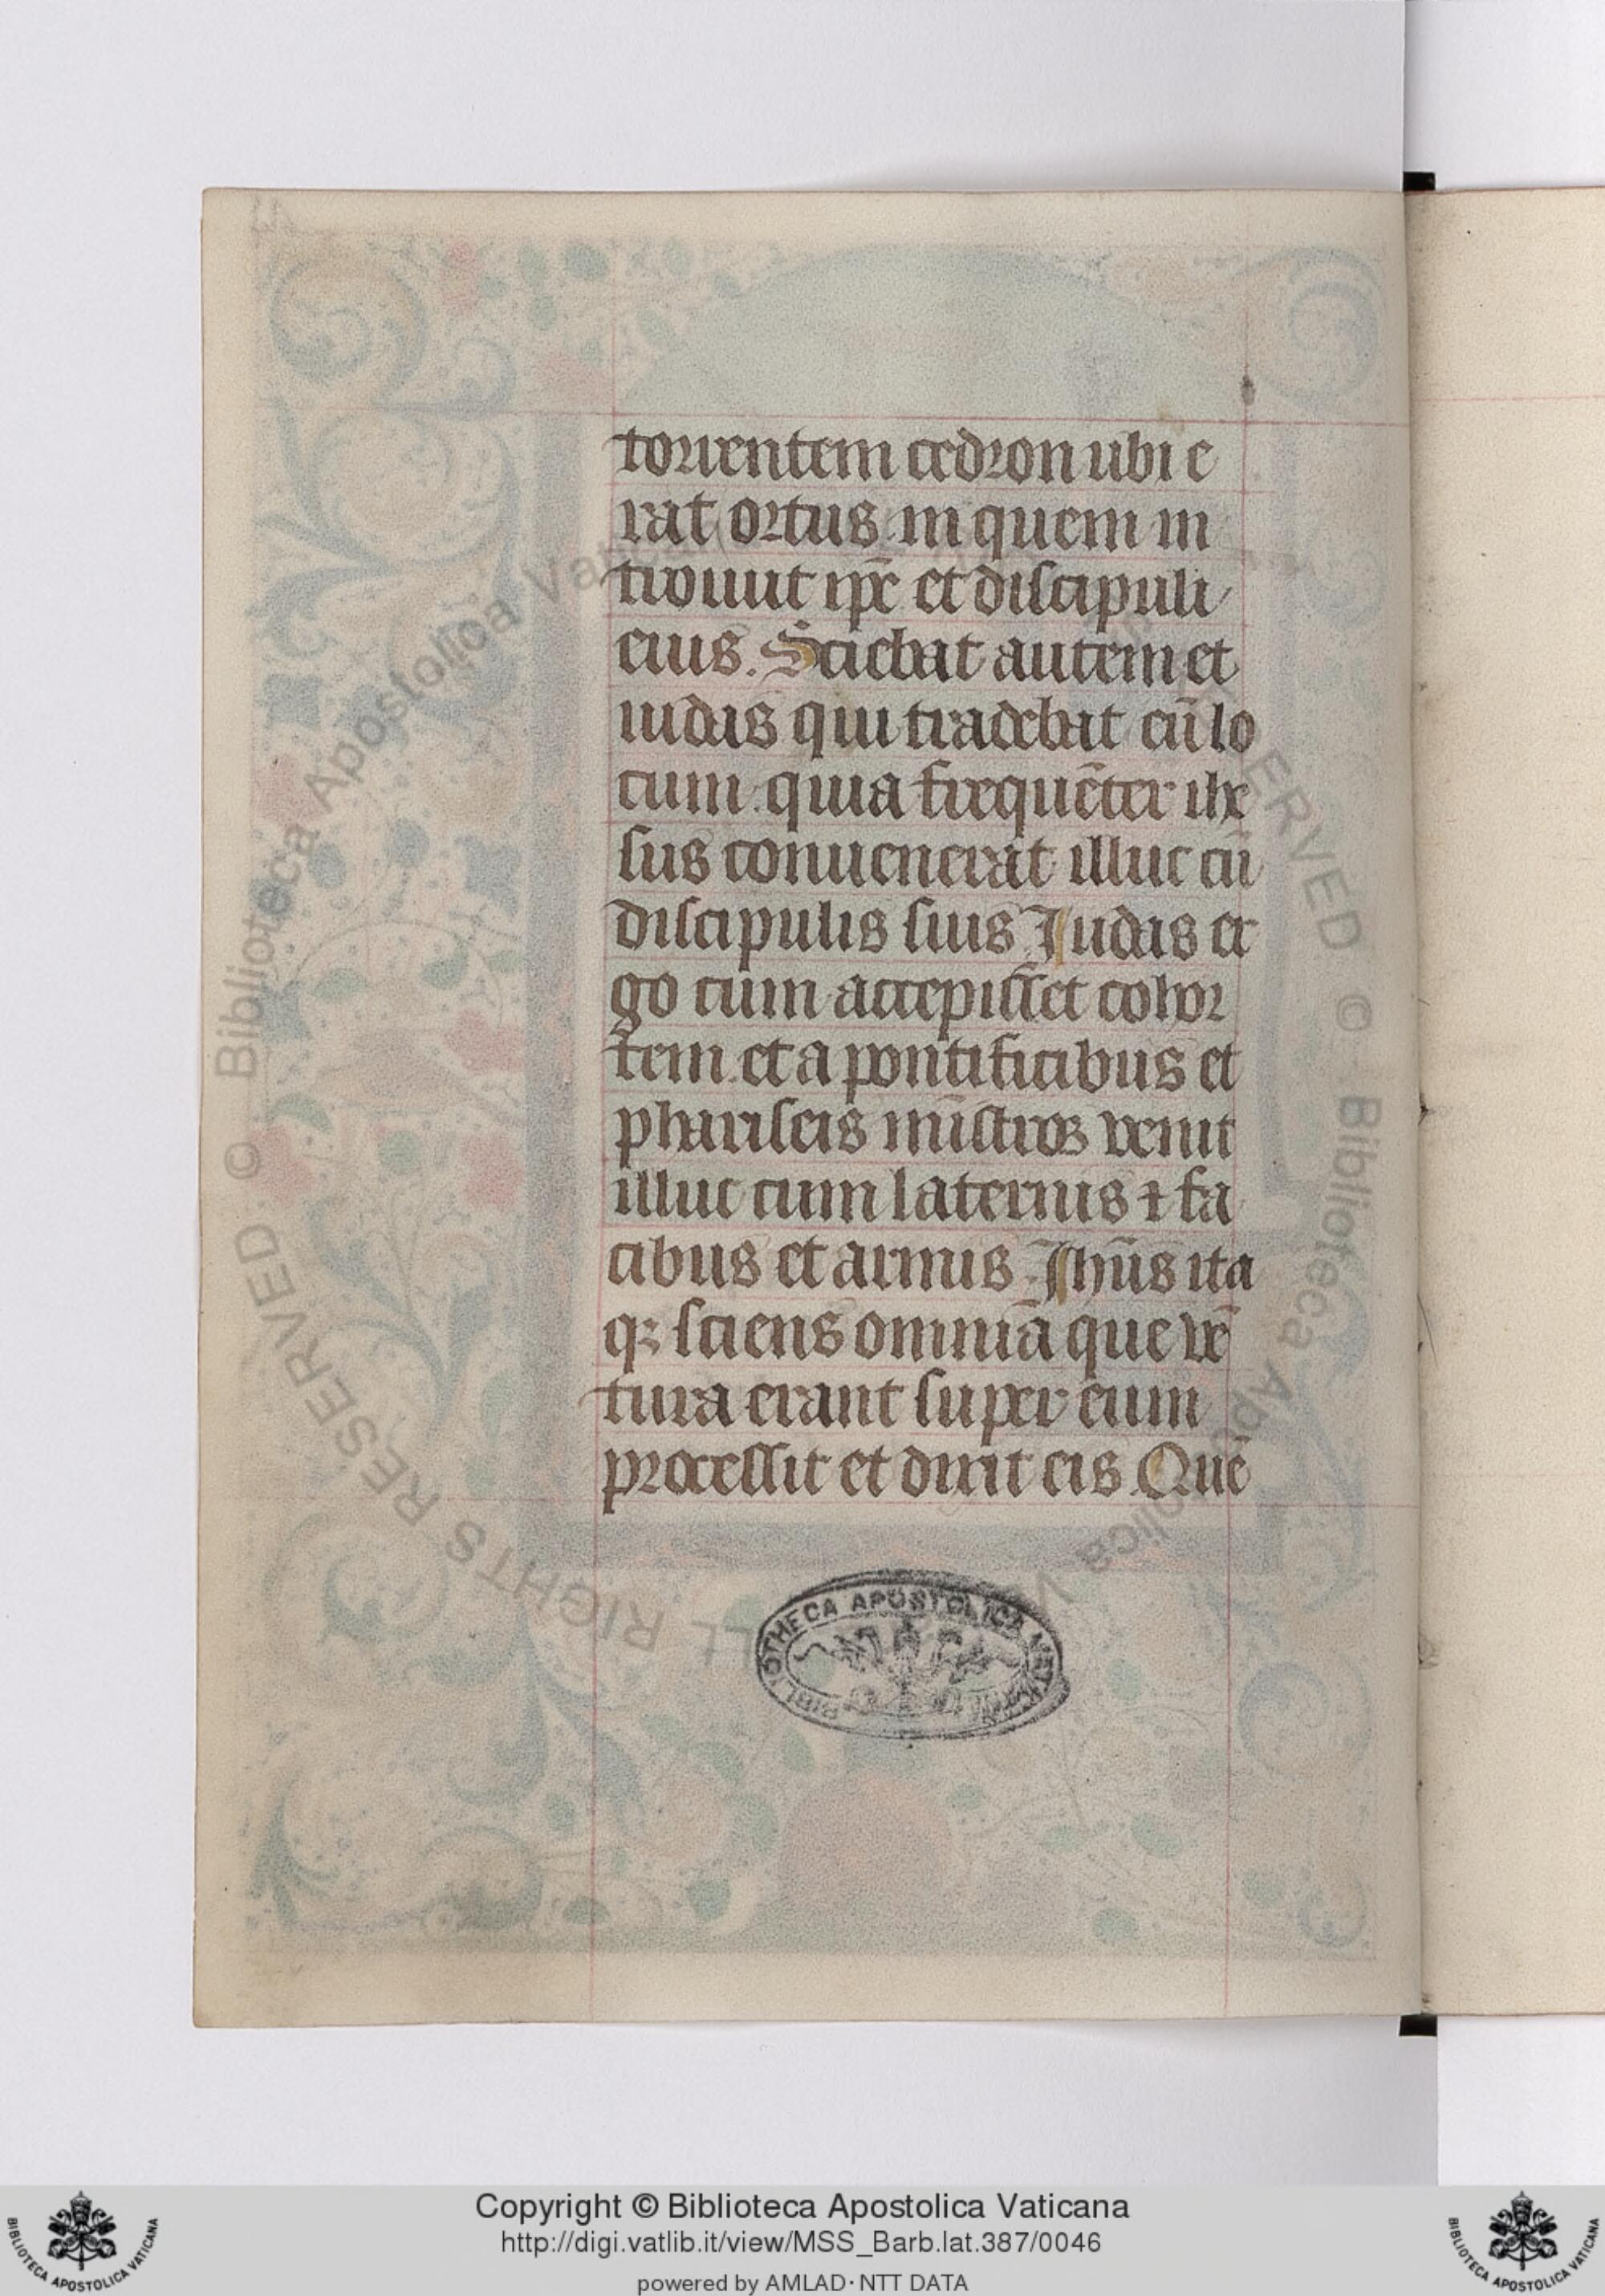 torrentem cedron ubi e
rat ortus in quem in
troiuit ip̄e et discipuli
eius. Sciebat autem et
iudas qui tradebat eū lo
cum. quia frequēter ihe
sus conuenerat illuc cū
discipulis suis Iudas er
go cum accepisset cohor
tem. et a pontificibus et
phariseis ministros venit
illuc cum laternis ⁊ fa
cibus et armis. Ihūs ita
qꝫ sciens omnia que vē
tura erant super eum
processit et dixit eis. Quē
BIBLIOTHECA APOSTOLICA VATICANA
© Biblioteca Apostolica Vaticana
ALL RIGHTS RESERVED
Copyright © Biblioteca Apostolica Vaticana
http://digi.vatlib.it/view/MSS_Barb.lat.387/0046
powered by AMLAD·NTT DATA
BIBLIOTECA APOSTOLICA VATICANA
BIBLIOTECA APOSTOLICA VATICANA